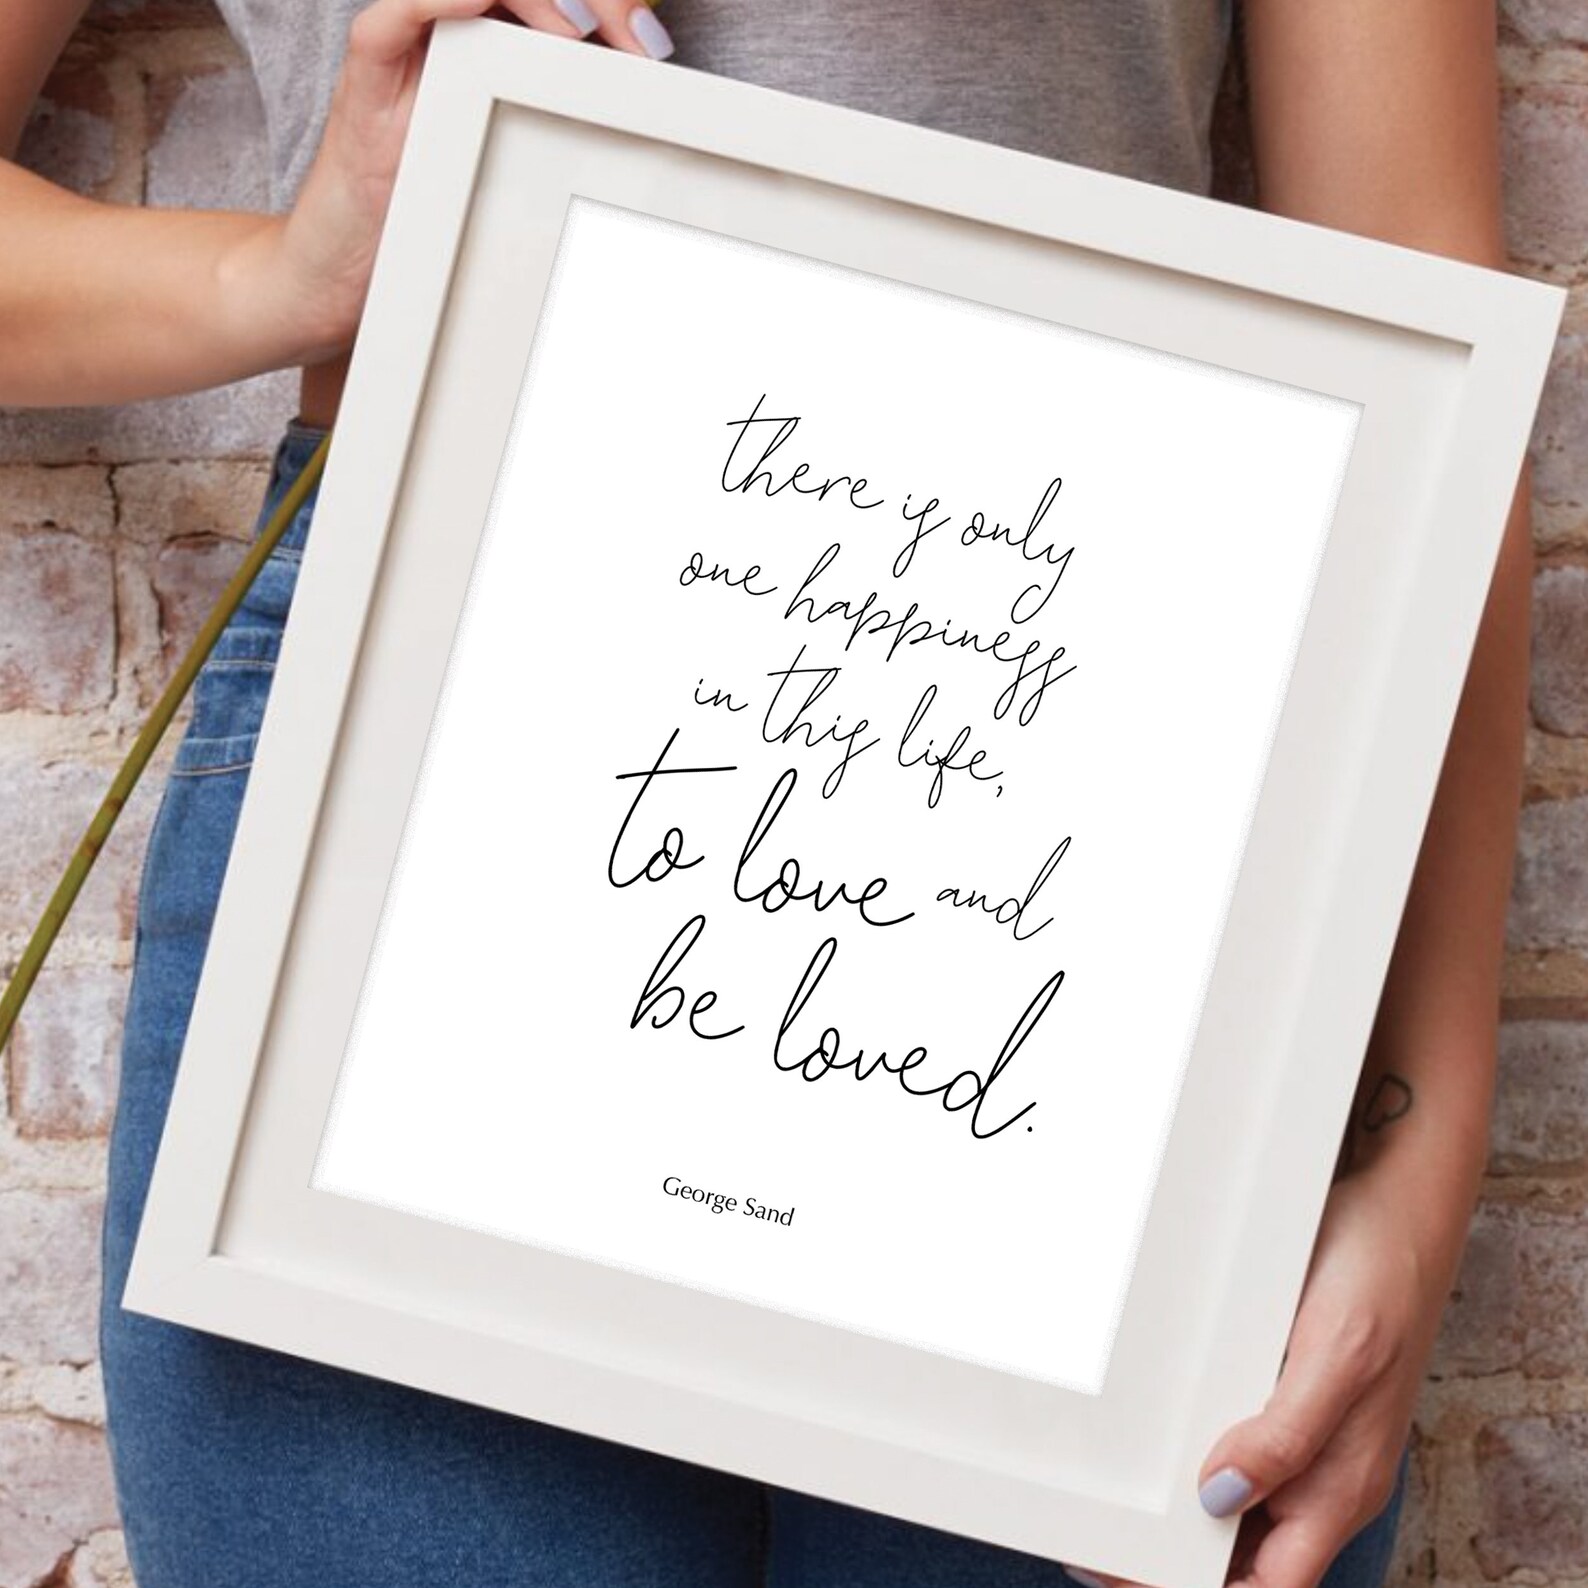 there is only
one happiness
in this life,
to love and
be loved.
George Sand